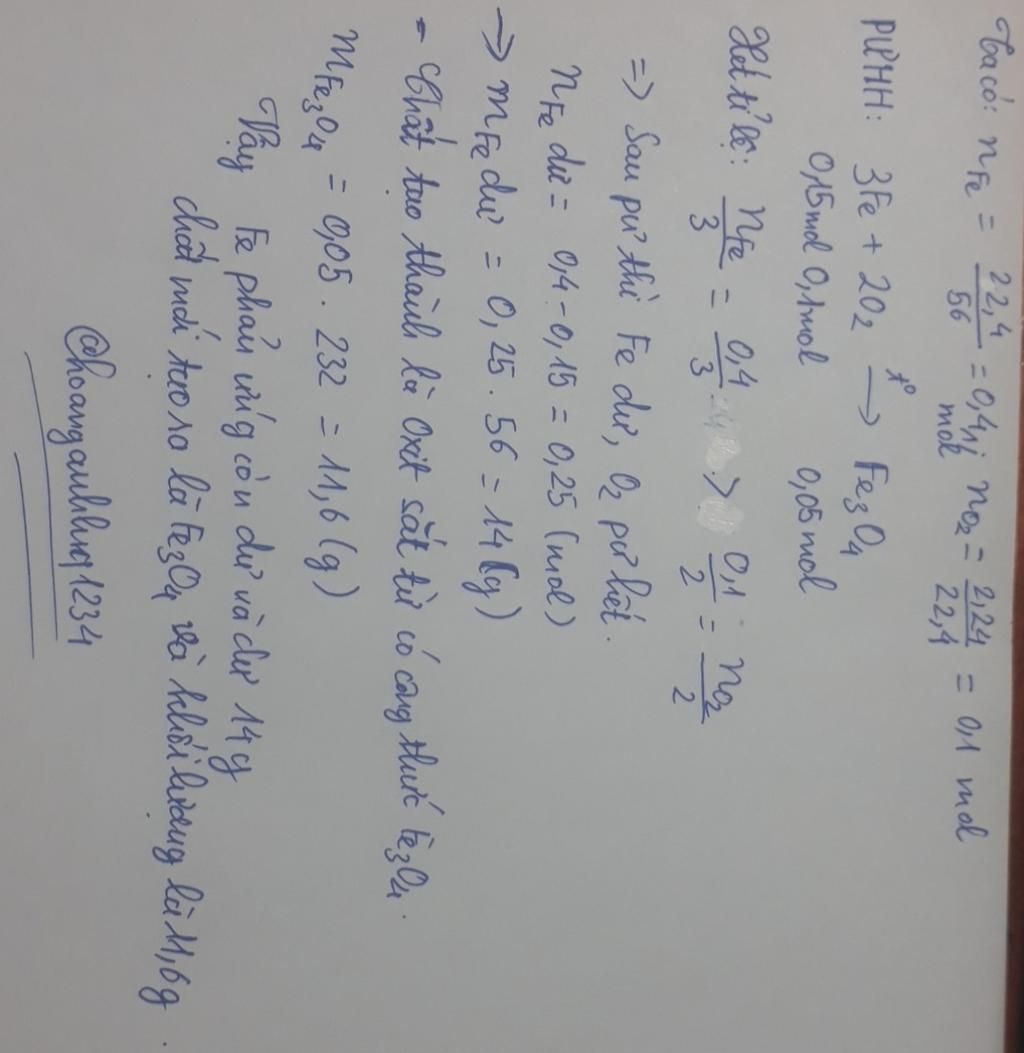 Ta có: nFe = 22,4/56 = 0,4 mol; nO2 = 2,24/22,4 = 0,1 mol
PTHH: 3Fe + 2O2 t° → Fe3O4
0,15mol 0,1mol 0,05mol
Xét tỉ lệ: nFe/3 = 0,4/3 > 0,1/2 = nO2/2
=> Sau pư thì Fe dư, O2 pư hết.
nFe dư = 0,4 - 0,15 = 0,25 (mol)
→ mFe dư = 0,25 . 56 = 14 (g)
- Chất tạo thành là Oxit sắt từ có công thức Fe3O4.
mFe3O4 = 0,05 . 232 = 11,6 (g)
Vậy Fe phản ứng còn dư và dư 14g
chất mới tạo ra là Fe3O4 và khối lượng là 11,6g.
@hoanganhhuq1234